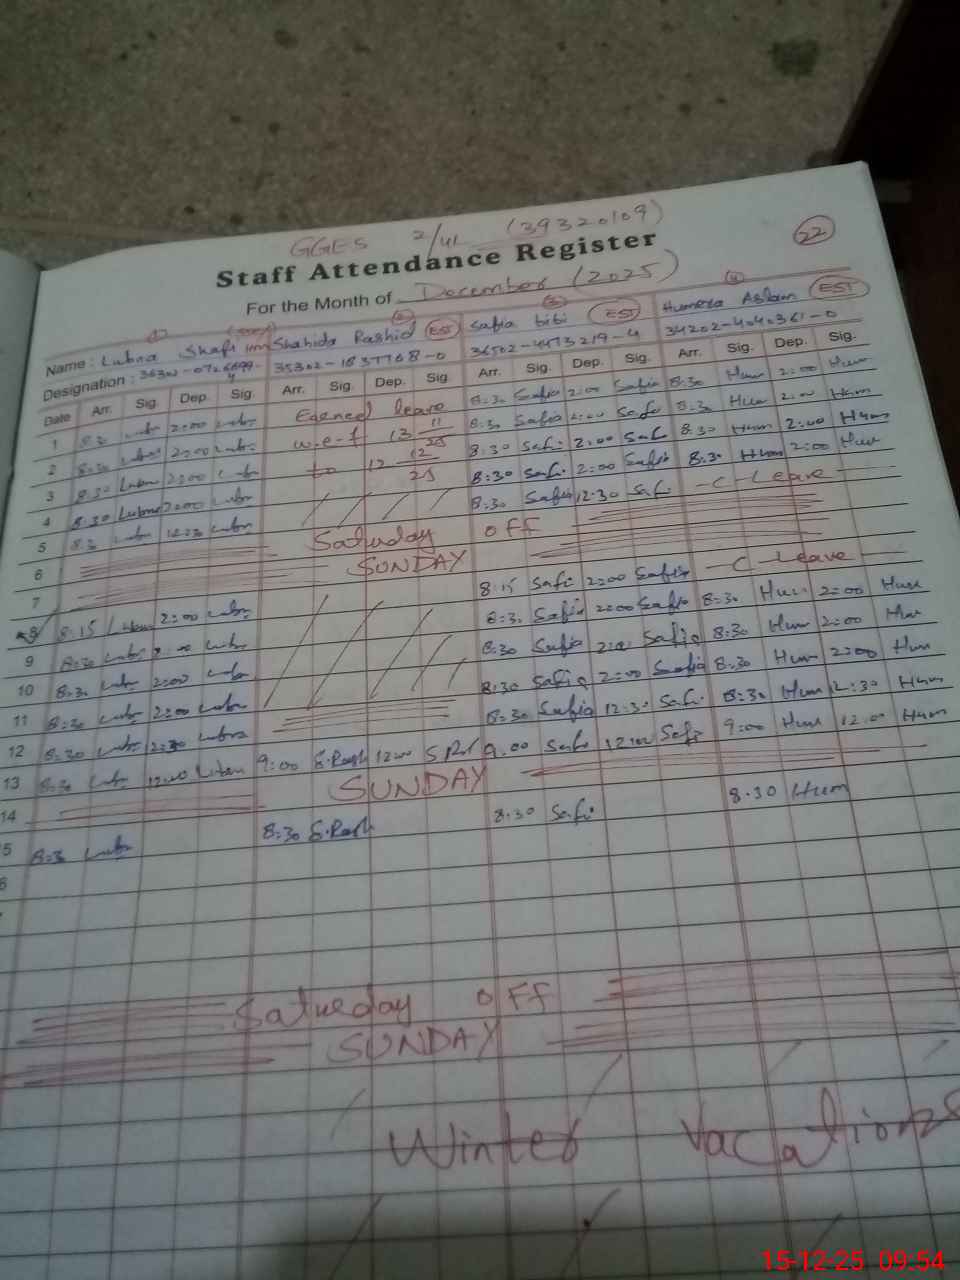 GGES 2/4L (39320109)
22
Staff Attendance Register
For the Month of December (2025)
Name: Lubna Shafi Shahida Rashid EST Safia bibi EST Humera Aslam EST
Designation: 35302-1837768-0 36502-4473219-4 34202-4040361-0
Date Arr. Sig. Dep. Sig. Arr. Sig. Dep. Sig. Arr. Sig. Dep. Sig. Arr. Sig. Dep. Sig.
1 8:30 Lubn 2:00 Lubn Earned leave 8:30 Safia 2:00 Safia 8:30 Hum 2:00 Hum
2 8:30 Lubn 2:00 Lubn w.e.f 13 11/25 8:30 Safia 2:00 Safi 8:30 Hum 2:00 Hum
3 8:30 Lubn 2:00 Lubn to 12 12/25 8:30 Safi 2:00 Safi 8:30 Hum 2:00 Hum
4 8:30 Lubna 2:00 Lubn 8:30 Safi 2:00 Safia 8:30 Hum 2:00 Hum
5 8:30 Lubn 12:30 Lubn 8:30 Safia 12:30 Safi - C - Leave -
6 Saturday OFF
7 SUNDAY
8 8:15 Lubn 2:00 Lubn 8:15 Safi 2:00 Safia - C - Leave -
9 8:30 Lubn 2:00 Lubn 8:30 Safia 2:00 Safia 8:30 Hum 2:00 Hum
10 8:30 Lubn 2:00 Lubn 8:30 Safia 2:00 Safia 8:30 Hum 2:00 Hum
11 8:30 Lubn 2:00 Lubn 8:30 Safia 2:00 Safia 8:30 Hum 2:00 Hum
12 8:30 Lubn 12:30 Lubna 8:30 Safia 12:30 Safi 8:30 Hum 12:30 Hum
13 8:30 Lubn 12:00 Lubn 9:00 S.Rash 12:00 S.R 9:00 Safi 12:00 Safi 9:00 Hum 12:00 Hum
14 SUNDAY
5 8:30 Lubn 8:30 S.Rash 8:30 Safi 8:30 Hum
6
Saturday OFF
SUNDAY
Winter Vacations
15-12-25 09:54